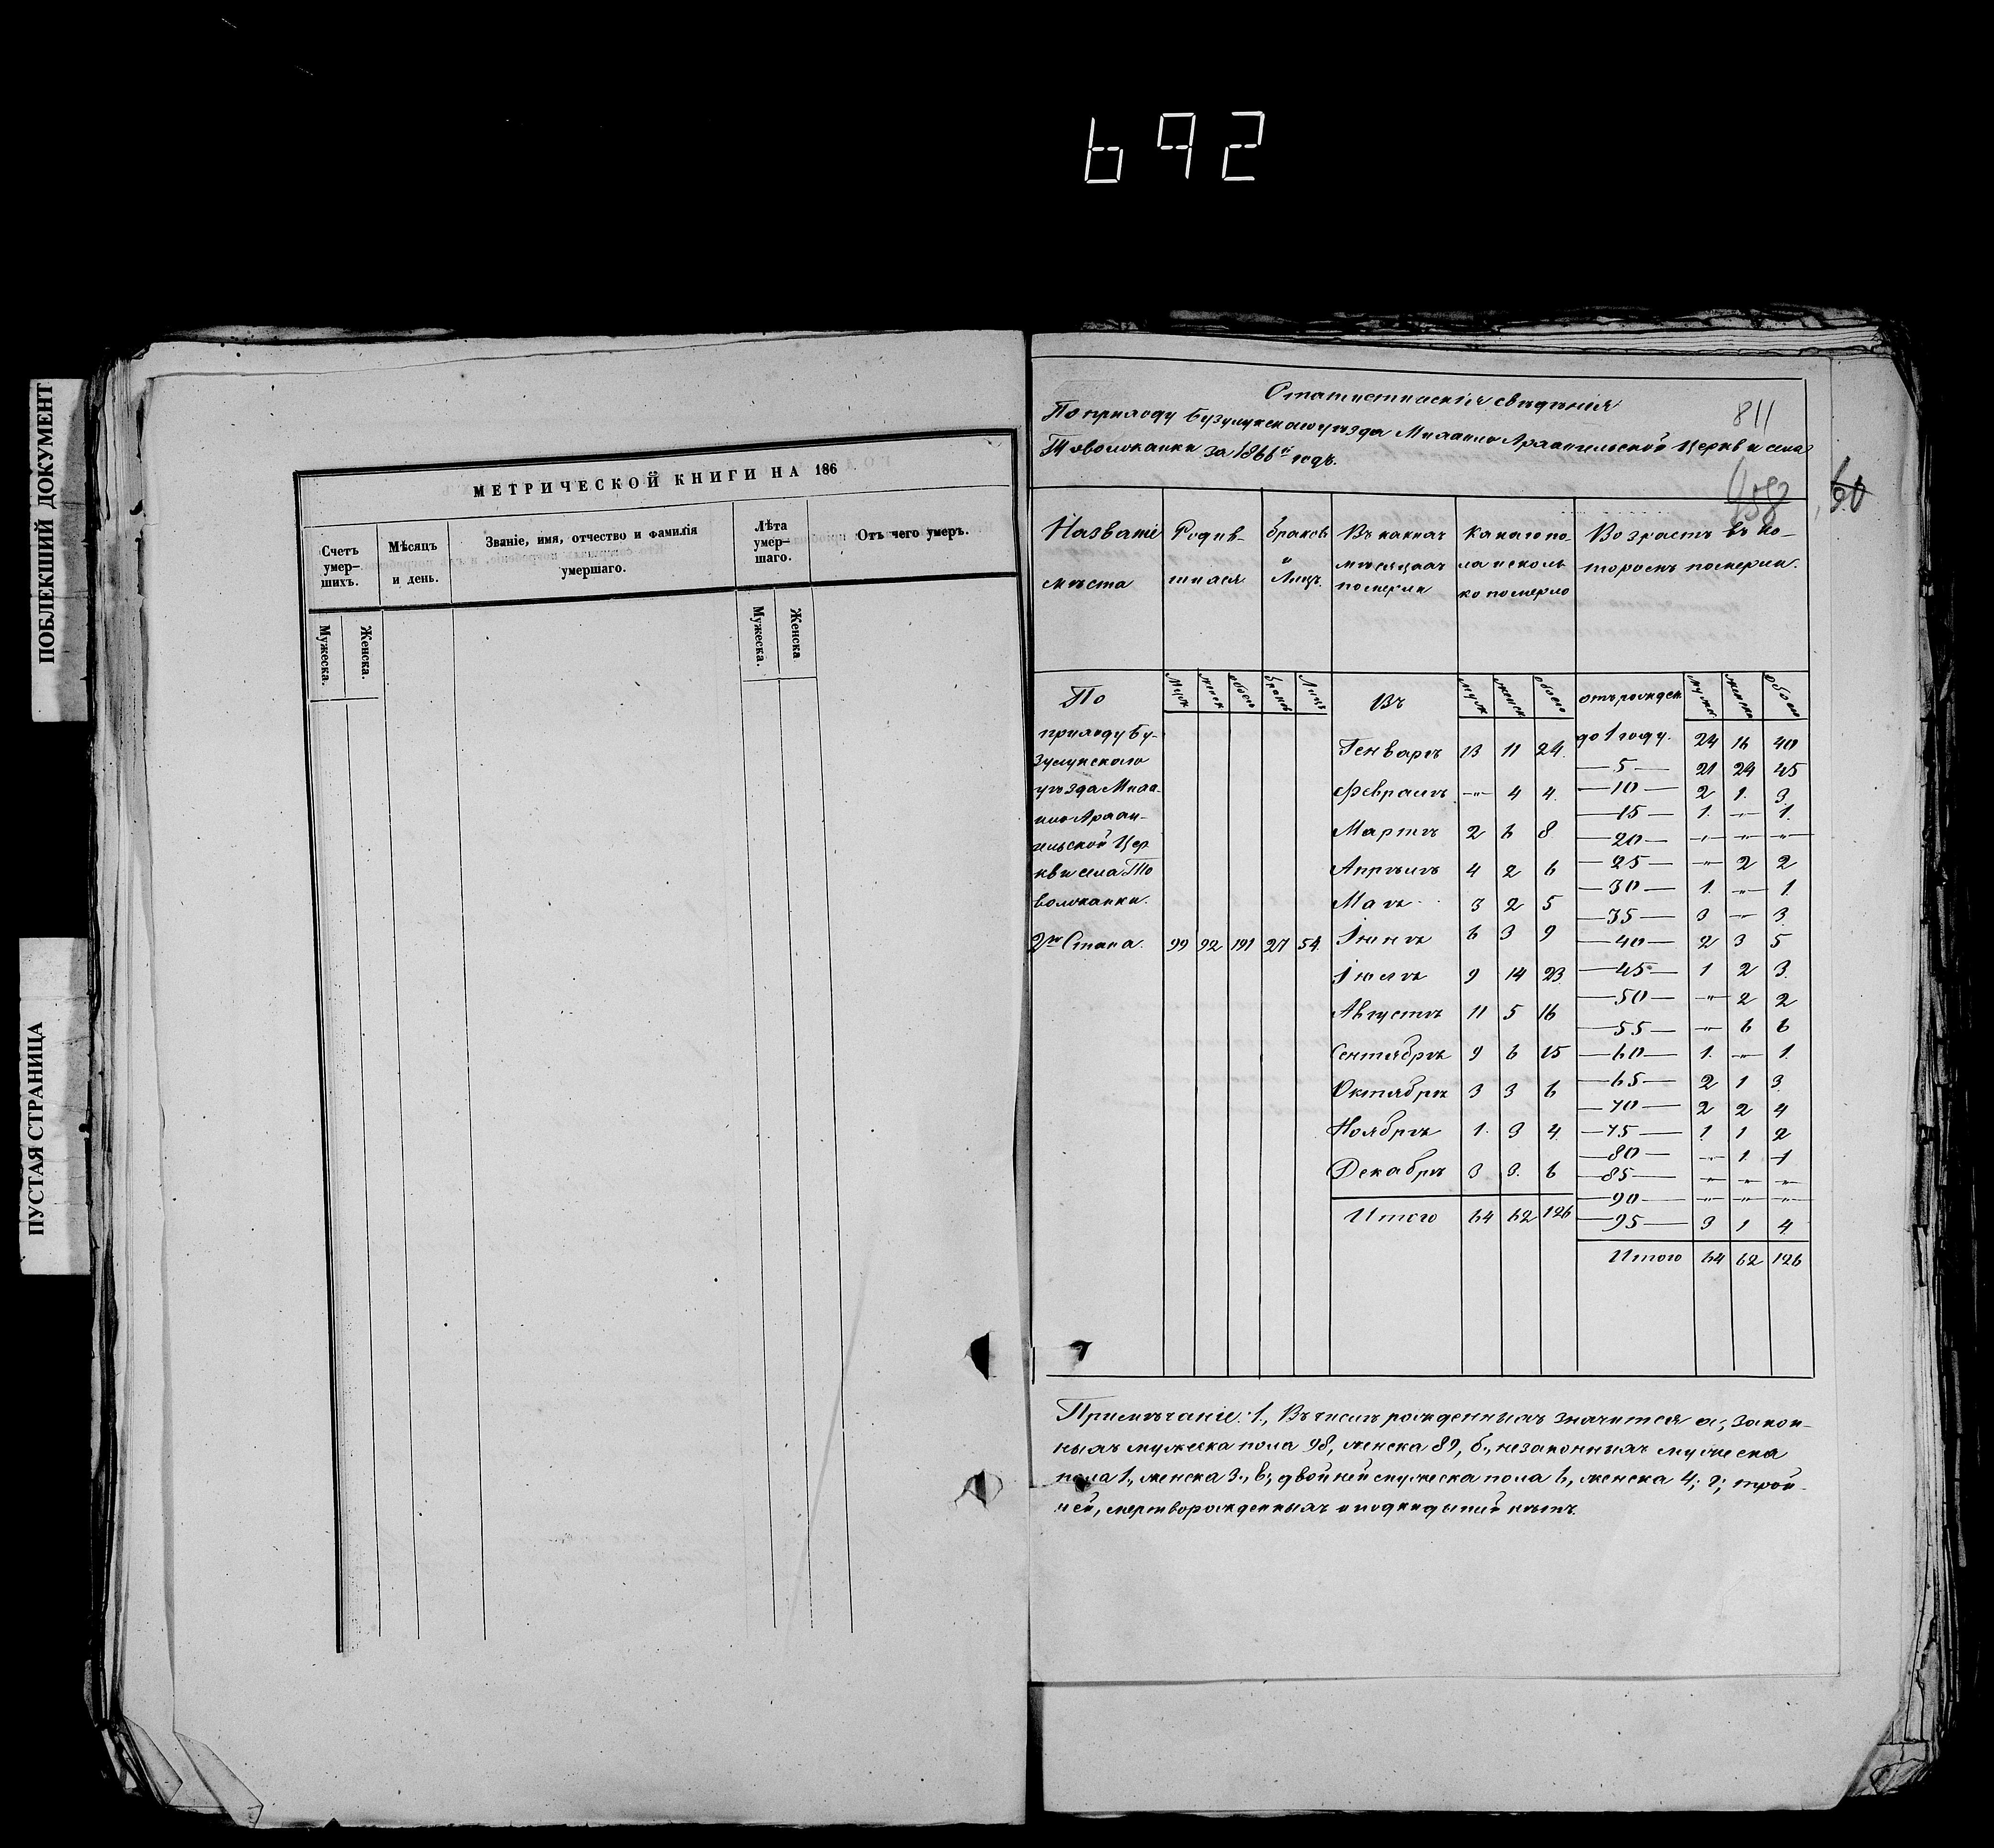 692
ПОБЛЕКШИЙ ДОКУМЕНТ
ПУСТАЯ СТРАНИЦА
МЕТРИЧЕСКОЙ КНИГИ НА 186
Счетъ умер– шихъ. Мѣсяцъ и день. Званіе, имя, отчество и фамилія умершаго. Лѣта умер– шаго. Отъ чего умеръ.
Мужеска. Женска. Мужеска. Женска
Статистическія свѣдѣнія
811
По приходу Бузулукскаго уѣзда Михаило Архангельской Церкви села
Товолжанки за 1866й годъ.
958
60
Названіе мѣста Родив– шихся Браковъ и Лицъ. Въ какихъ мѣсяцахъ померли Какаго по– ла и сколь ко померло Возрастъ въ ко– торомъ померли.
По Муж женск обоего Браковъ Лицъ Въ муж женск обоего отъ рожден мужс женска обоего
приходу Бу–
зулукскаго
уѣзда Миха–
ило Архан–
гельской Цер
кви села То
волжанки.
2го Стана. 99 92 191 27 54.
Генварѣ 13 11 24.
Февралѣ —„— 4 4.
Мартѣ 2 6 8
Апрѣлѣ 4 2 6
Маѣ 3 2 5
Іюнѣ 6 3 9
Іюлѣ 9 14 23
Августѣ 11 5 16
Сентябрѣ 9 6 15
Октябрѣ 3 3 6
Ноябрѣ 1. 3 4.
Декабрѣ 3 3. 6
Итого 64 62 126
до 1 году. 24 16 40
—5— 21 24 45
—10— 2 1. 3.
—15— 1. —„— 1.
—20— —„— —„— —„—
—25— —„— 2 2
—30— 1. —„— 1.
—35— 3 —„— 3
—40— 2 3 5
—45— 1 2 3.
—50— —„— 2 2
—55— —„— 6 6
—60— 1. —„— 1.
—65— 2 1 3.
—70— 2 2 4
—75— 1 1 2
—80— —„— 1. 1
—85— —„— —„— —„—
—90— —„— —„— —„—
—95— 3 1 4
Итого 64 62 126
Примѣчаніе: 1., Въ числѣ рожденныхъ значится а., закон–
ныхъ мужеска пола 98, женска 89, б., незаконныхъ мужеска
пола 1., женска 3., в., двойней мужеска пола 6, женска 4; г; трой–
ней, мертворожденныхъ и подкидышей нѣтъ.